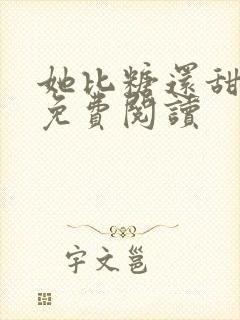 她比糖還甜
免費閱讀
宇文邕